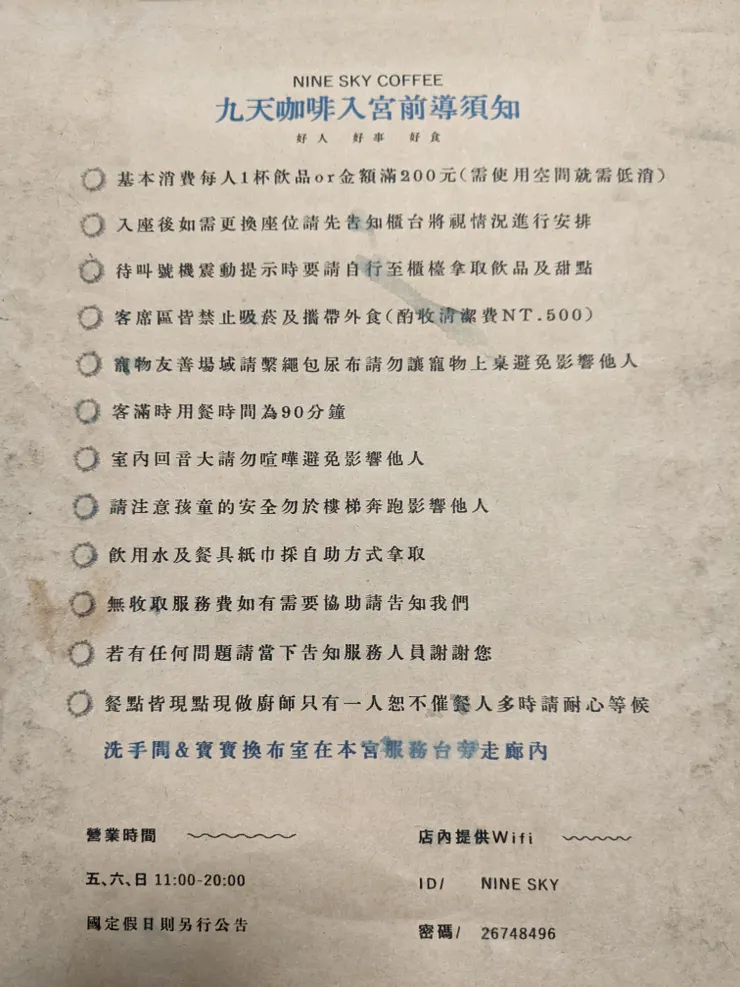 NINE SKY COFFEE
九天咖啡入宮前導須知
好人 好事 好食
基本消費每人1杯飲品or金額滿200元(需使用空間就需低消)
入座後如需更換座位請先告知櫃台將視情況進行安排
待叫號機震動提示時要請自行至櫃檯拿取飲品及甜點
客席區皆禁止吸菸及攜帶外食(酌收清潔費NT.500)
寵物友善場域請繫繩包尿布請勿讓寵物上桌避免影響他人
客滿時用餐時間為90分鐘
室內回音大請勿喧嘩避免影響他人
請注意孩童的安全勿於樓梯奔跑影響他人
飲用水及餐具紙巾採自助方式拿取
無收取服務費如有需要協助請告知我們
若有任何問題請當下告知服務人員謝謝您
餐點皆現點現做廚師只有一人恕不催餐人多時請耐心等候
洗手間&寶寶換布室在本宮服務台旁走廊內
營業時間
五、六、日 11:00-20:00
國定假日則另行公告
店內提供Wifi
ID/ NINE SKY
密碼/ 26748496